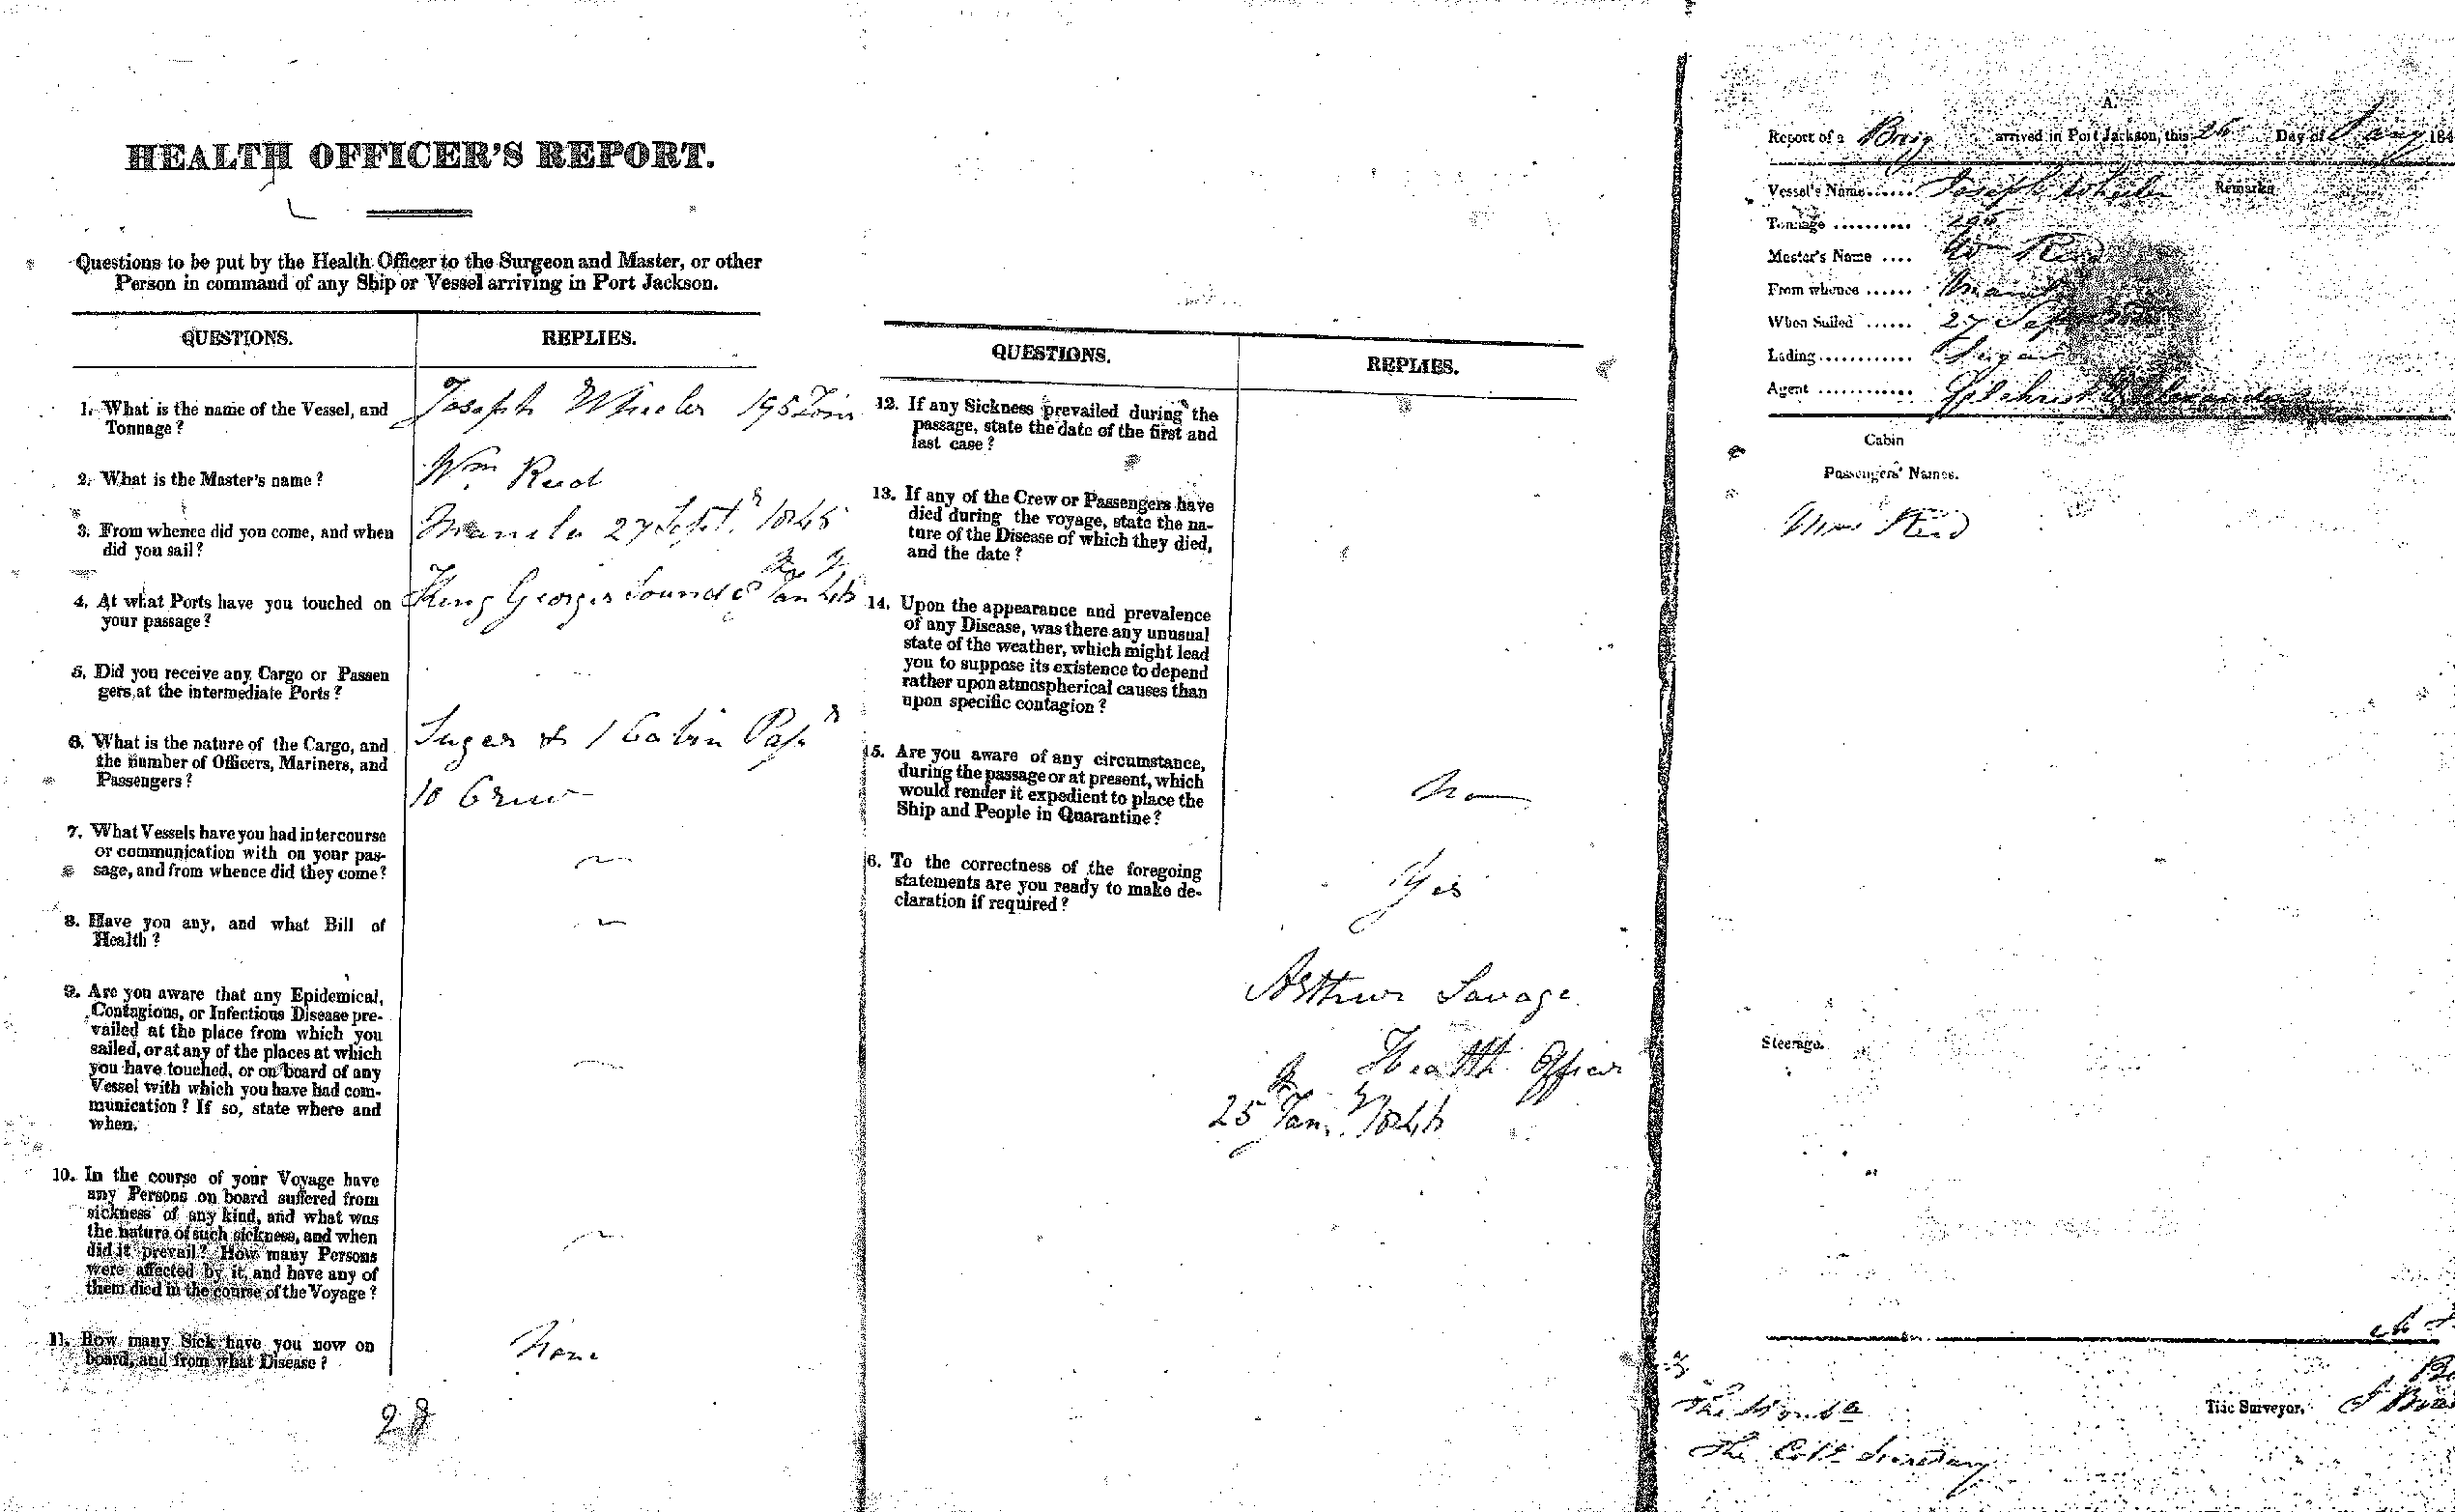 HEALTH OFFICER'S REPORT.
Questions to be put by the Health Officer to the Surgeon and Master, or other
Person in command of any Ship or Vessel arriving in Port Jackson.
QUESTIONS.
REPLIES.
1. What is the name of the Vessel, and
Tonnage?
Joseph Wheeler 195 Tons
2. What is the Master's name?
Wm Reid
3. From whence did you come, and when
did you sail?
Manila 27 Septr. 1845
4. At what Ports have you touched on
your passage?
King Georges Sound Jany 46
5. Did you receive any Cargo or Passen
gers at the intermediate Ports?
6. What is the nature of the Cargo, and
the number of Officers, Mariners, and
Passengers?
Sugar & 1 Cabin Passr
10 Crew
7. What Vessels have you had intercourse
or communication with on your pas-
sage, and from whence did they come?
8. Have you any, and what Bill of
Health?
9. Are you aware that any Epidemical,
Contagious, or Infectious Disease pre-
vailed at the place from which you
sailed, or at any of the places at which
you have touched, or on board of any
Vessel with which you have had com-
munication? If so, state where and
when.
10. In the course of your Voyage have
any Persons on board suffered from
sickness of any kind, and what was
the nature of such sickness, and when
did it prevail? How many Persons
were affected by it, and have any of
them died in the course of the Voyage?
11. How many Sick have you now on
board, and from what Disease?
None
28
QUESTIONS.
REPLIES.
12. If any Sickness prevailed during the
passage, state the date of the first and
last case?
13. If any of the Crew or Passengers have
died during the voyage, state the na-
ture of the Disease of which they died,
and the date?
14. Upon the appearance and prevalence
of any Disease, was there any unusual
state of the weather, which might lead
you to suppose its existence to depend
rather upon atmospherical causes than
upon specific contagion?
15. Are you aware of any circumstance,
during the passage or at present, which
would render it expedient to place the
Ship and People in Quarantine?
No
6. To the correctness of the foregoing
statements are you ready to make de-
claration if required?
Yes
Arthur Savage
Health Officer
25 Jany. 1846
A.
Report of a Brig arrived in Port Jackson, this 26 Day of Jany 184
Vessel's Name...... Joseph Wheeler
Remarks
Tonnage .......... 195
Master's Name .... Wm Reid
From whence ...... Manila
When Sailed ...... 27 Sept
Lading............ Sugar
Agent ............ Gilchrist & Alexander
Cabin
Passengers' Names.
Mrs Reid
Steerage.
Tide Surveyor,
The Honble
The Coll. Secretary